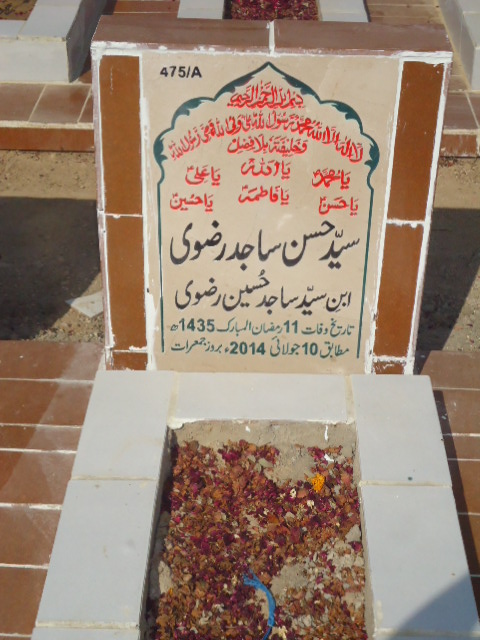 475/A
بسم اللہ الرحمن الرحیم
لا الہ الا اللہ محمد رسول اللہ علی ولی اللہ وصی رسول اللہ
وخلیفتہ بلا فصل
یا محمدؐ یا اللہ یا علیؑ
یا حسنؑ یا فاطمہؑ یا حسینؑ
سیّد حسن ساجد رضوی
ابن سیّد ساجد حُسین رضوی
تاریخ وفات 11 رمضان المبارک 1435ھ
مطابق 10 جولائی 2014ء بروز جمعرات